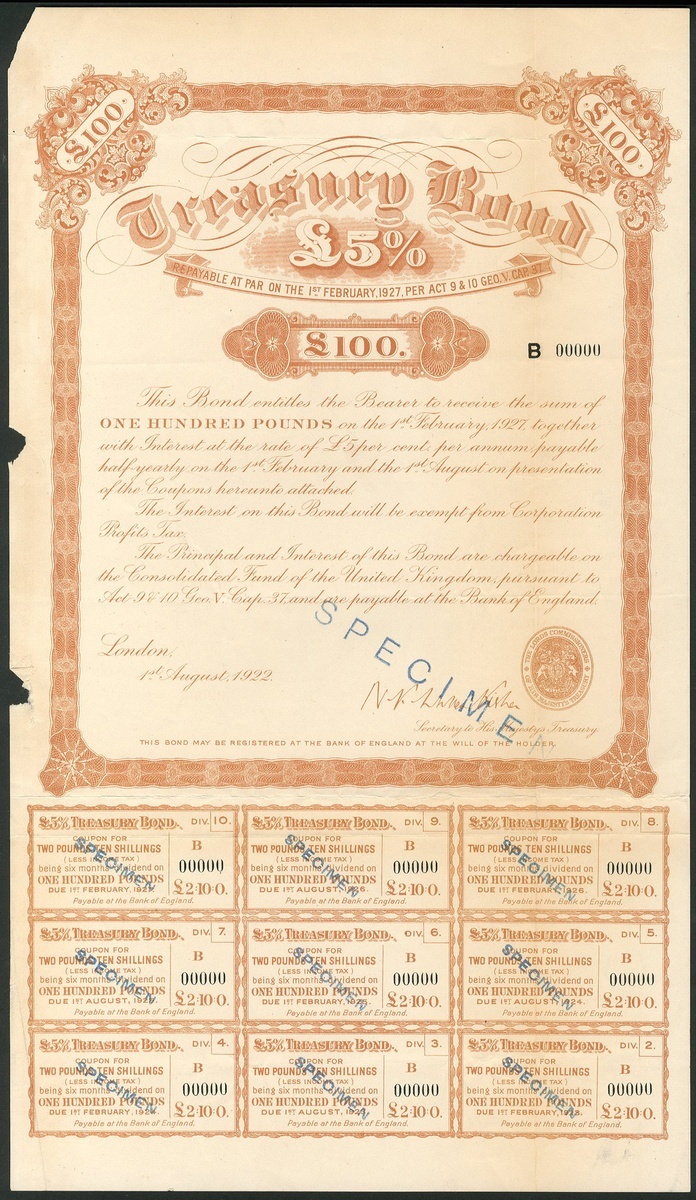 £100
£100
Treasury Bond
£5%
REPAYABLE AT PAR ON THE 1ST FEBRUARY, 1927, PER ACT 9 & 10 GEO. V. CAP. 37.
£100.
B 00000
This Bond entitles the Bearer to receive the sum of
ONE HUNDRED POUNDS on the 1st February, 1927, together
with Interest at the rate of £5 per cent. per annum, payable
half-yearly on the 1st February and the 1st August on presentation
of the Coupons hereunto attached.
The Interest on this Bond will be exempt from Corporation
Profits Tax.
The Principal and Interest of this Bond are chargeable on
the Consolidated Fund of the United Kingdom, pursuant to
Act 9 & 10 Geo. V. Cap. 37, and are payable at the Bank of England.
SPECIMEN
London,
1st August, 1922.
Secretary to His Majestys Treasury.
THIS BOND MAY BE REGISTERED AT THE BANK OF ENGLAND AT THE WILL OF THE HOLDER.
£5% TREASURY BOND. DIV. 10.
COUPON FOR
TWO POUNDS TEN SHILLINGS
(LESS INCOME TAX)
being six months dividend on
ONE HUNDRED POUNDS
DUE 1ST FEBRUARY,
B
00000
£2:10:0.
Payable at the Bank of England.
SPECIMEN
£5% TREASURY BOND. DIV. 9.
COUPON FOR
TWO POUNDS TEN SHILLINGS
(LESS INCOME TAX)
being six months dividend on
ONE HUNDRED POUNDS
DUE 1ST AUGUST,
B
00000
£2:10:0.
Payable at the Bank of England.
SPECIMEN
£5% TREASURY BOND. DIV. 8.
COUPON FOR
TWO POUNDS TEN SHILLINGS
(LESS INCOME TAX)
being six months dividend on
ONE HUNDRED POUNDS
DUE 1ST FEBRUARY, 1926.
B
00000
£2:10:0.
Payable at the Bank of England.
SPECIMEN
£5% TREASURY BOND. DIV. 7.
COUPON FOR
TWO POUNDS TEN SHILLINGS
(LESS INCOME TAX)
being six months dividend on
ONE HUNDRED POUNDS
DUE 1ST AUGUST,
B
00000
£2:10:0.
Payable at the Bank of England.
SPECIMEN
£5% TREASURY BOND. DIV. 6.
COUPON FOR
TWO POUNDS TEN SHILLINGS
(LESS INCOME TAX)
being six months dividend on
ONE HUNDRED POUNDS
DUE 1ST FEBRUARY,
B
00000
£2:10:0.
Payable at the Bank of England.
SPECIMEN
£5% TREASURY BOND. DIV. 5.
COUPON FOR
TWO POUNDS TEN SHILLINGS
(LESS INCOME TAX)
being six months dividend on
ONE HUNDRED POUNDS
DUE 1ST AUGUST, 1924.
B
00000
£2:10:0.
Payable at the Bank of England.
SPECIMEN
£5% TREASURY BOND. DIV. 4.
COUPON FOR
TWO POUNDS TEN SHILLINGS
(LESS INCOME TAX)
being six months dividend on
ONE HUNDRED POUNDS
DUE 1ST FEBRUARY,
B
00000
£2:10:0.
Payable at the Bank of England.
SPECIMEN
£5% TREASURY BOND. DIV. 3.
COUPON FOR
TWO POUNDS TEN SHILLINGS
(LESS INCOME TAX)
being six months dividend on
ONE HUNDRED POUNDS
DUE 1ST AUGUST,
B
00000
£2:10:0.
Payable at the Bank of England.
SPECIMEN
£5% TREASURY BOND. DIV. 2.
COUPON FOR
TWO POUNDS TEN SHILLINGS
(LESS INCOME TAX)
being six months dividend on
ONE HUNDRED POUNDS
DUE 1ST FEBRUARY,
B
00000
£2:10:0.
Payable at the Bank of England.
SPECIMEN